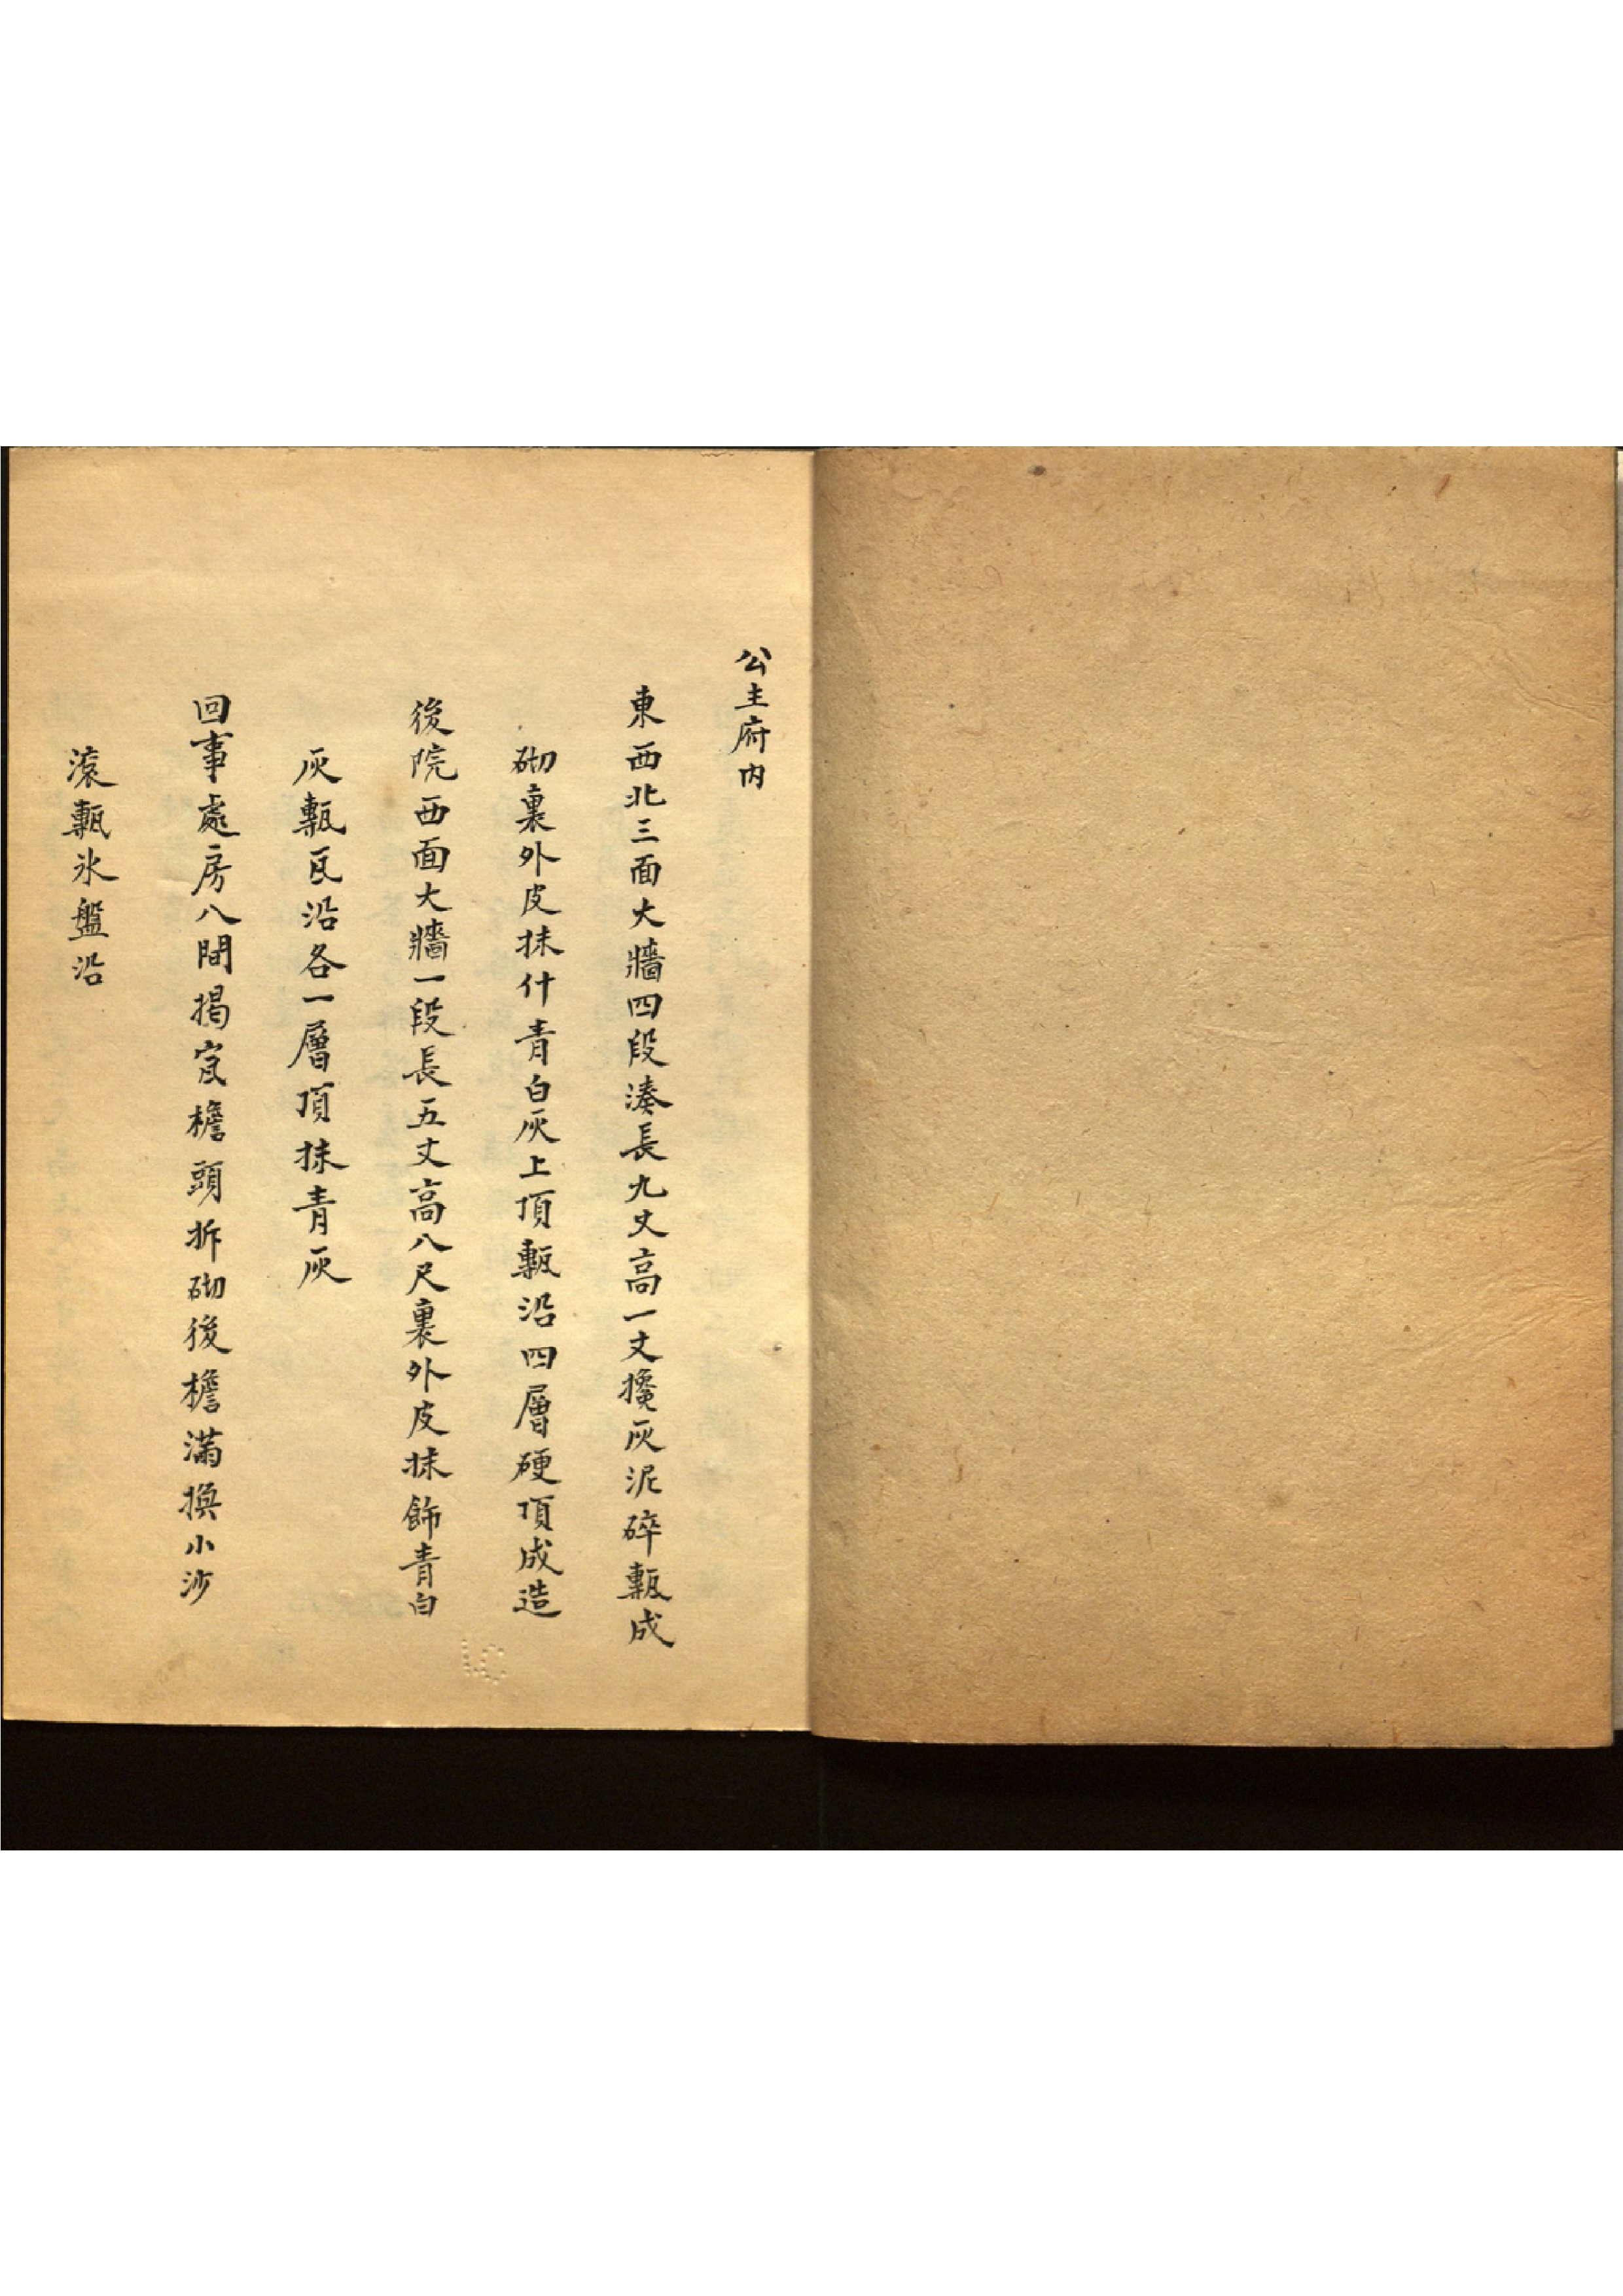 公主府内
東西北三面大牆四段湊長九丈高一丈攙灰泥碎甎成
砌裏外皮抹什青白灰上頂甎沿四層硬頂成造
後院西面大牆一段長五丈高八尺裏外皮抹飾青白
灰甎瓦沿各一層頂抹青灰
回事處房八間揭㝔檐頭拆砌後檐滿換小沙
滾甎氷盤沿